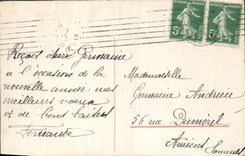 Reçois chère Germaine
à l'occasion de la
nouvelle année mes
meilleurs voeux
et de bons baisers
Fernande
5c 5c
Mademoiselle
Germaine Andrieu
56 rue Duméril
Amiens
Somme